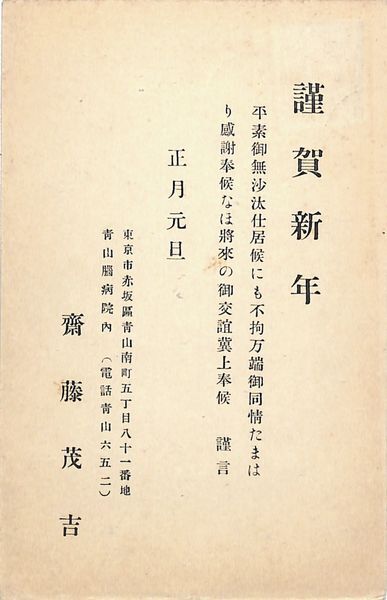 謹賀新年
平素御無沙汰仕居候にも不拘万端御同情たまは
り感謝奉候なほ將來の御交誼冀上奉候　謹言
正月元旦
東京市赤坂區青山南町五丁目八十一番地
青山腦病院內（電話青山六五二）
齋藤茂吉